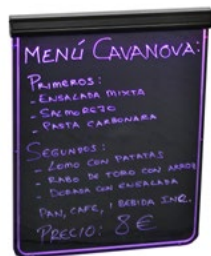 MENÚ CAVANOVA:
PRIMEROS:
- ENSALADA MIXTA
- SALMOREJO
- PASTA CARBONARA
SEGUNDOS:
- LOMO CON PATATAS
- RABO DE TORO CON ARROZ
- DORADA CON ENSALADA
PAN, CAFE, 1 BEBIDA INR.
PRECIO: 8€